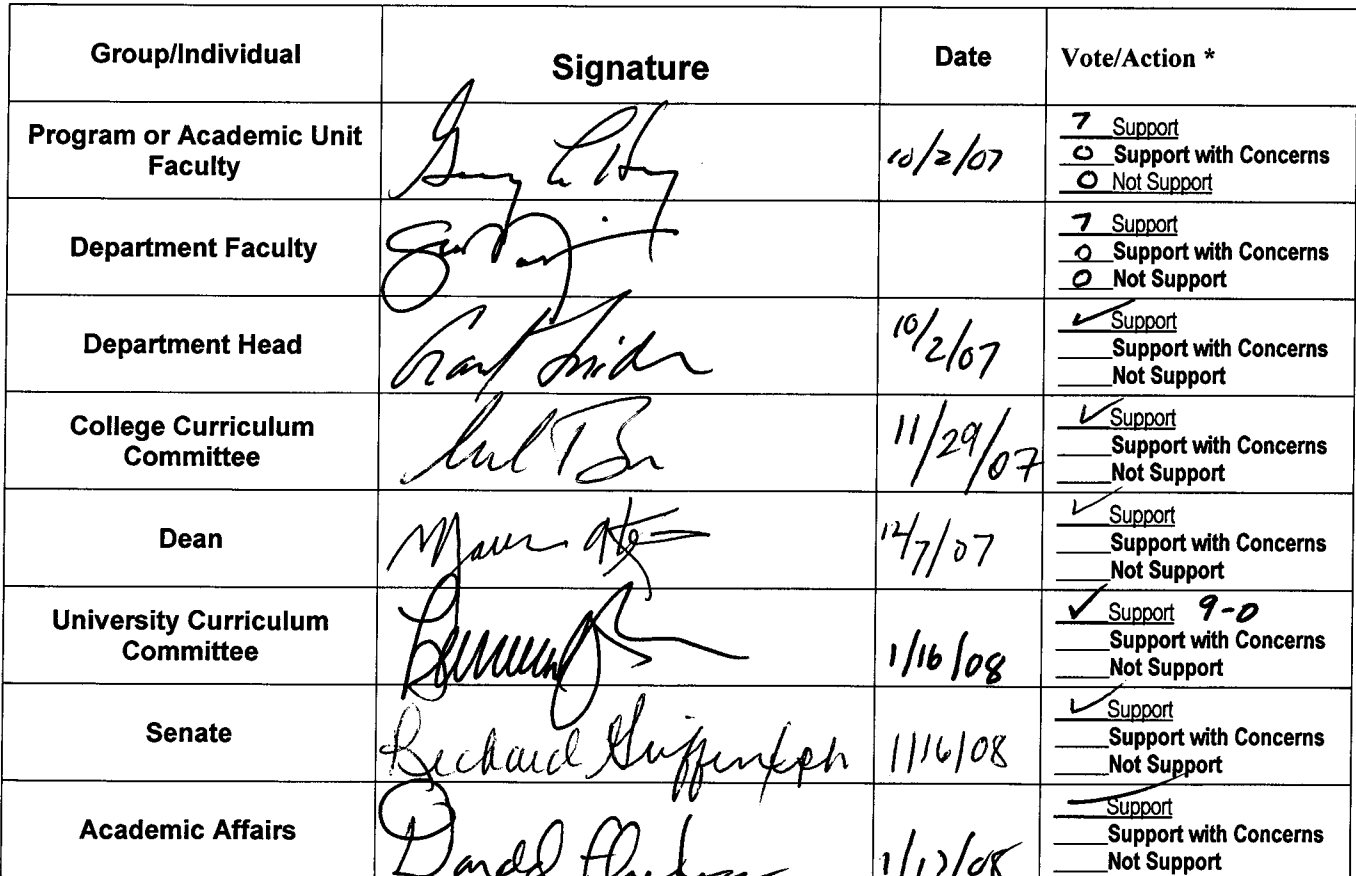 Group/Individual Signature Date Vote/Action *
Program or Academic Unit
Faculty
10/2/07
7 Support
0 Support with Concerns
0 Not Support
Department Faculty
7 Support
0 Support with Concerns
0 Not Support
Department Head
10/2/07
✓ Support
Support with Concerns
Not Support
College Curriculum
Committee
11/29/07
✓ Support
Support with Concerns
Not Support
Dean
12/7/07
✓ Support
Support with Concerns
Not Support
University Curriculum
Committee
1/16/08
✓ Support 9-0
Support with Concerns
Not Support
Senate
Richard
1/16/08
✓ Support
Support with Concerns
Not Support
Academic Affairs
Support
Support with Concerns
Not Support